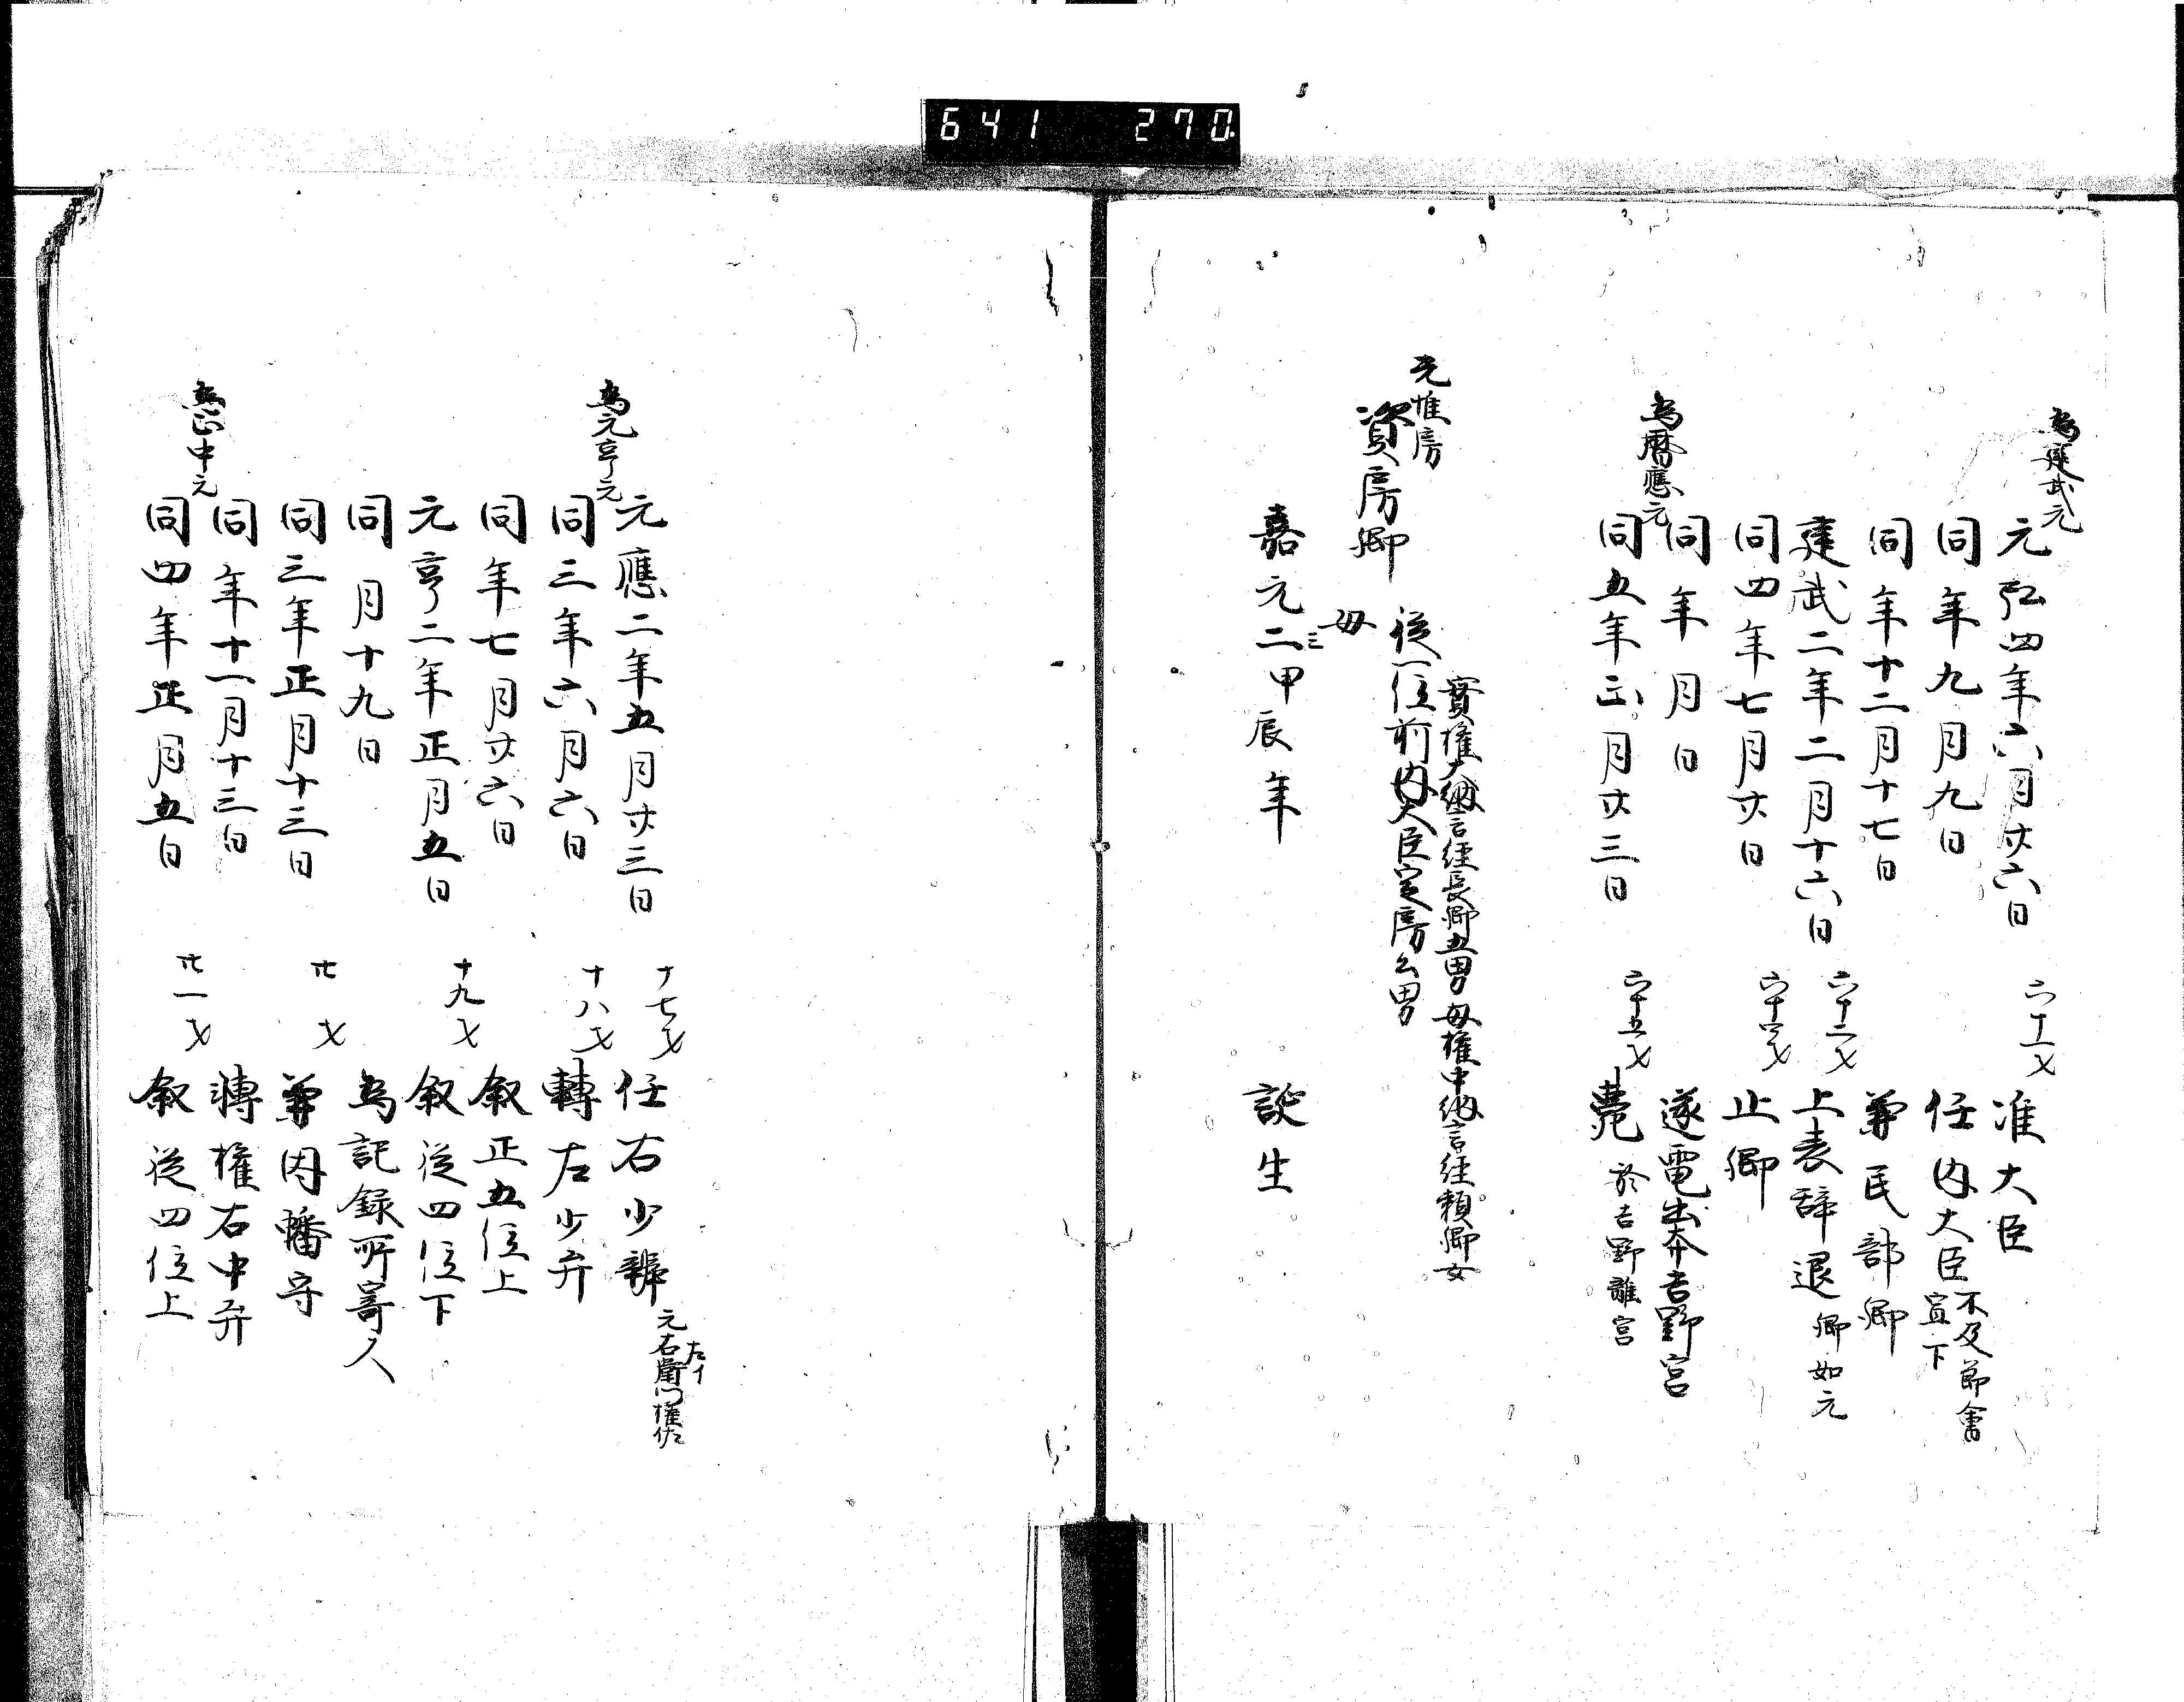 641 270
為建武元
元弘四年六月廿六日 六十一才 准大臣
同年九月九日 任内大臣 不及節會宣下
同年十二月十七日 兼民部卿
建武二年二月十六日 六十二才 上表辞退 卿如元
同四年七月廿日 六十四才 止卿
同年月日 逐電出奔吉野宮
為暦應元
同五年正月廿三日 六十五才 薨 於吉野離宮
實權大納言經長卿五男 母權中納言經頼卿女
元惟房
資房卿 從一位前内大臣定房公男
母
嘉元二三甲辰年 誕生
元應二年五月廿三日 十七才 任右少辨 元右衛門權佐 左イ
為元亨元
同三年六月六日 十八才 轉左少弁
同年七月廿六日 叙正五位上
元亨二年正月五日 十九才 叙從四位下
同月十九日 為記録所寄人
同三年正月十三日 廿才 兼因幡守
同年十一月十三日 轉權右中弁
為正中元
同四年正月五日 廿一才 叙從四位上